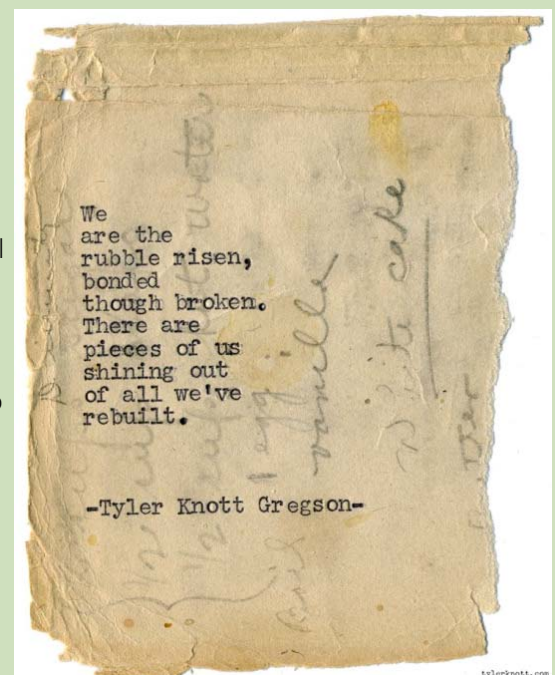 We
are the
rubble risen,
bonded
though broken.
There are
pieces of us
shining out
of all we've
rebuilt.
-Tyler Knott Gregson-
White cake
vanilla
1 egg
1/2 cup
1/2 cup water
tylerknott.com